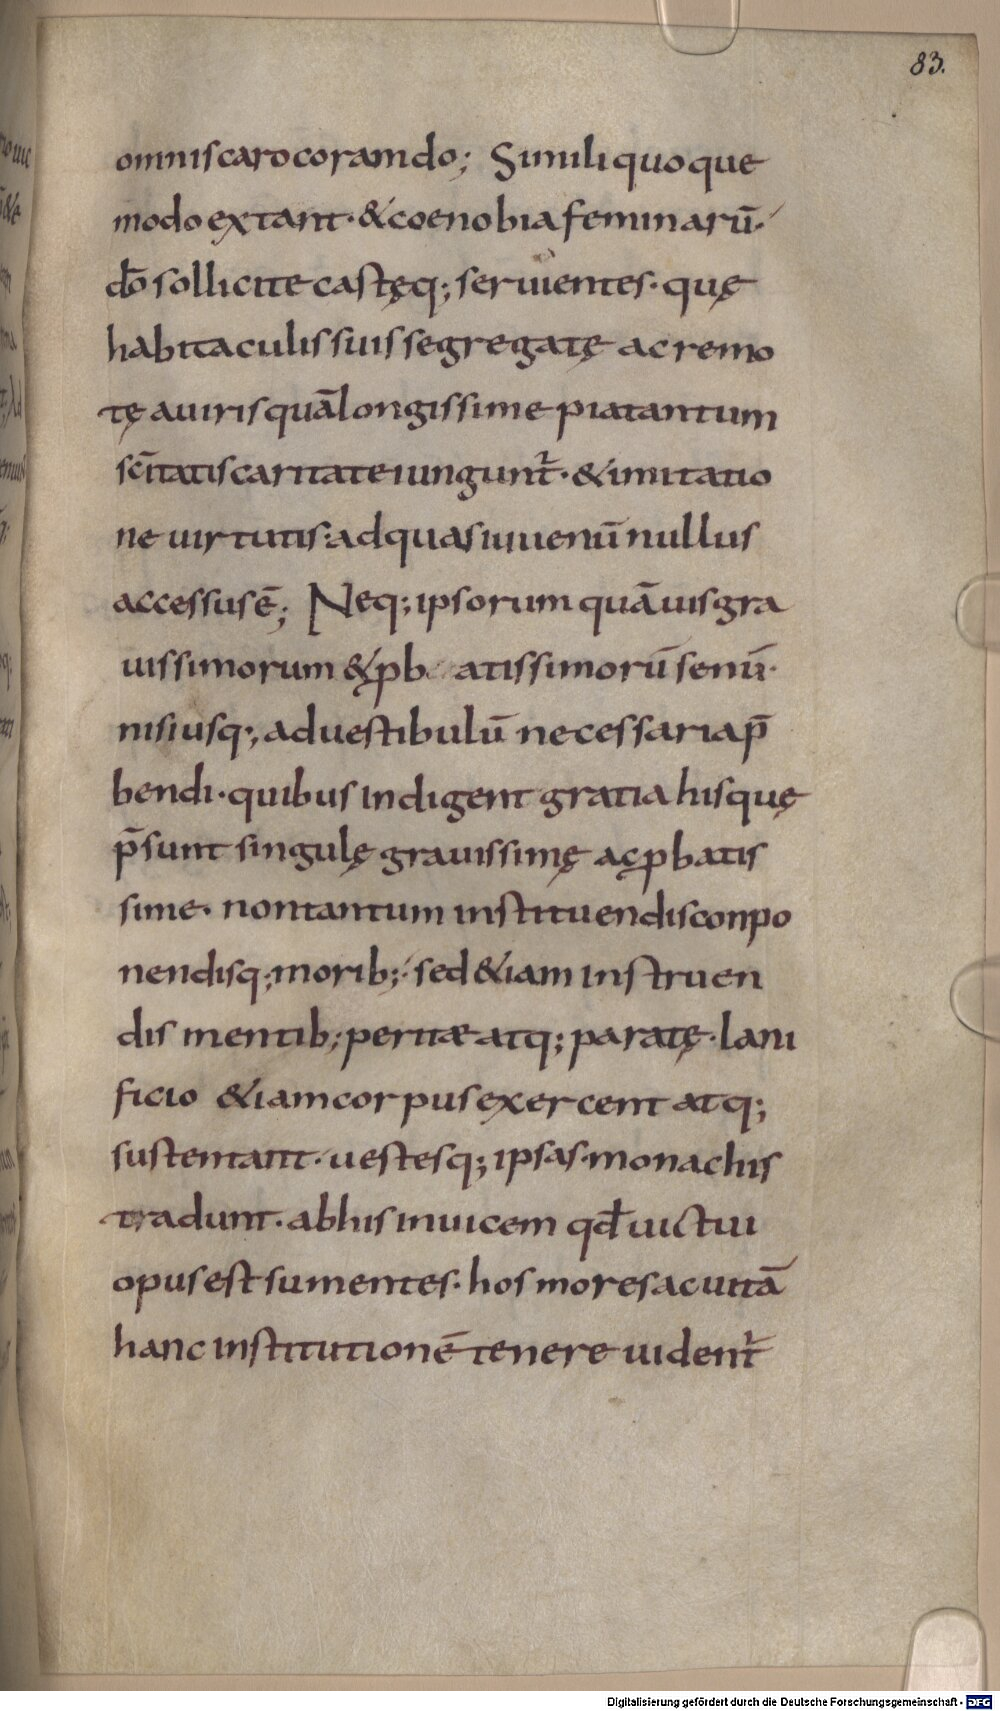 83.
omnis caro coram do; Simili quoque
modo extant· & coenobia feminarū·
dō sollicite castęq; seruientes· quę
habitaculis suis segregatę ac remo
tę a uiris quā longissime pia tantum
scītatis caritate iungunt̄· & imitatio
ne uirtutis· ad quas iuuenū nullus
accessus ē; Neq; ipsorum quāuis gra
uissimorum & pb atissimorū senū·
nisi usq; ad uestibulū necessaria p̄
bendi· quibus indigent gratia his quę
p̄sunt singulę grauissimę ac ꝓbatis
sime· non tantum instituendis conpo
nendisq; morib; sed &iam instruen
dis mentib; peritæ atq; paratę· lani
ficio &iam corpus exercent atq;
sustentant· uestesq; ipsas· monachis
tradunt· ab his inuicem qd̄ uictui
opus est sumentes· hos mores ac uitā
hanc institutionē tenere uident̄
Digitalisierung gefördert durch die Deutsche Forschungsgemeinschaft - DFG